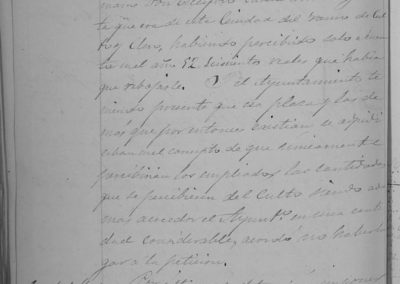 mano Don
te que era de esta Ciudad del ramo de Cul
to y Clero, habiendo percibido solo durante
te mel año 52 seiscientos reales que habia
que rebajarle. El Ayuntamiento te
niendo presente que esa plaza y las de
mas que por entonces existian se adjudi
caban en el concepto de que unicamente
percibirian los empleados las cantidades
que se percibieren del Culto siendo ade
mas acreedor el Ayuntº. en una canti
dad considerable, acordó no haber lu
gar a la peticion.